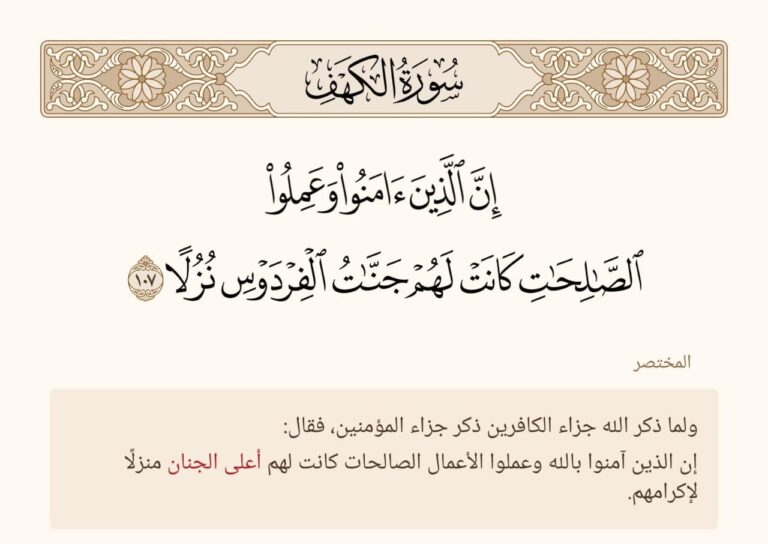 سُورَةُ الكَهْفِ
إِنَّ ٱلَّذِينَ ءَامَنُوا۟ وَعَمِلُوا۟
ٱلصَّـٰلِحَـٰتِ كَانَتْ لَهُمْ جَنَّـٰتُ ٱلْفِرْدَوْسِ نُزُلًا ١٠٧
المختصر
ولما ذكر الله جزاء الكافرين ذكر جزاء المؤمنين، فقال:
إن الذين آمنوا بالله وعملوا الأعمال الصالحات كانت لهم أعلى الجنان منزلًا
لإكرامهم.